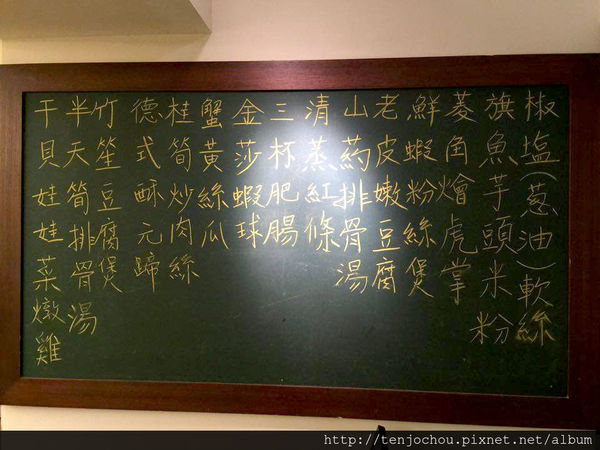 椒塩(葱油)軟絲
旗魚芋頭米粉
菱角燴虎掌
鮮蝦粉絲煲
老皮嫩豆腐
山葯排骨湯
清蒸紅條
三杯肥腸
金莎蝦球
蟹黃絲瓜
桂筍炒肉絲
德式酥元蹄
竹笙豆腐煲
半天筍排骨湯
干貝娃娃菜燉雞
http://tenjochou.pixnet.net/album